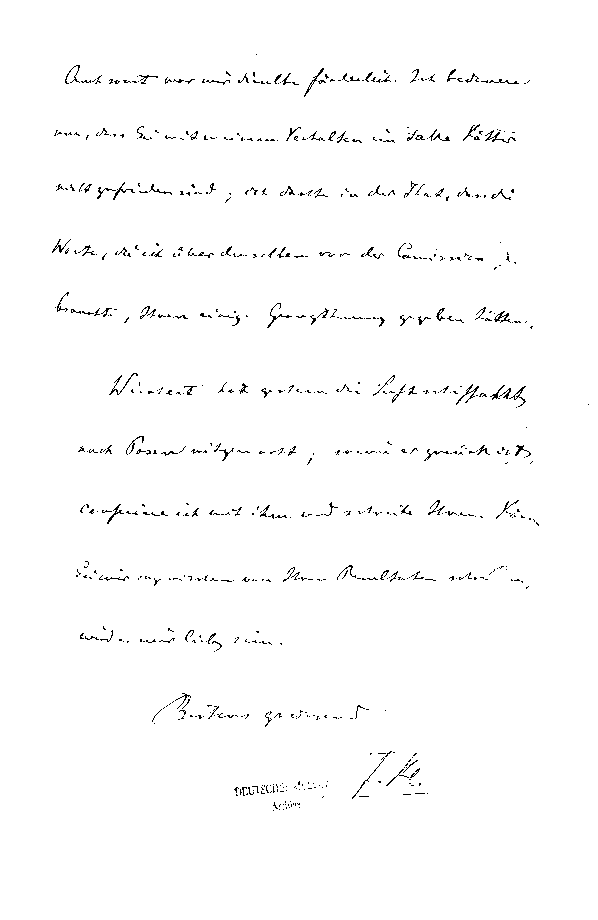 Auch sonst war mir dieselbe förderlich. Ich bedauere
nur, dass Sie mit meinem Verhalten im Falle
nicht zufrieden sind; ich dachte in der That, dass die
Worte, die ich über denselben vor der Comission ge-
braucht, Ihnen einige Genugthuung gegeben hätten.
hat gestern die Luftschifffahrt
nach Posen mitgemacht; sowie er zurück ist,
conferire ich mit ihm und schreibe Ihnen.
von Ihren Resultaten
würde mir lieb sein.
Bestens grüssend
DEUTSCHES MUSEUM
Archiv